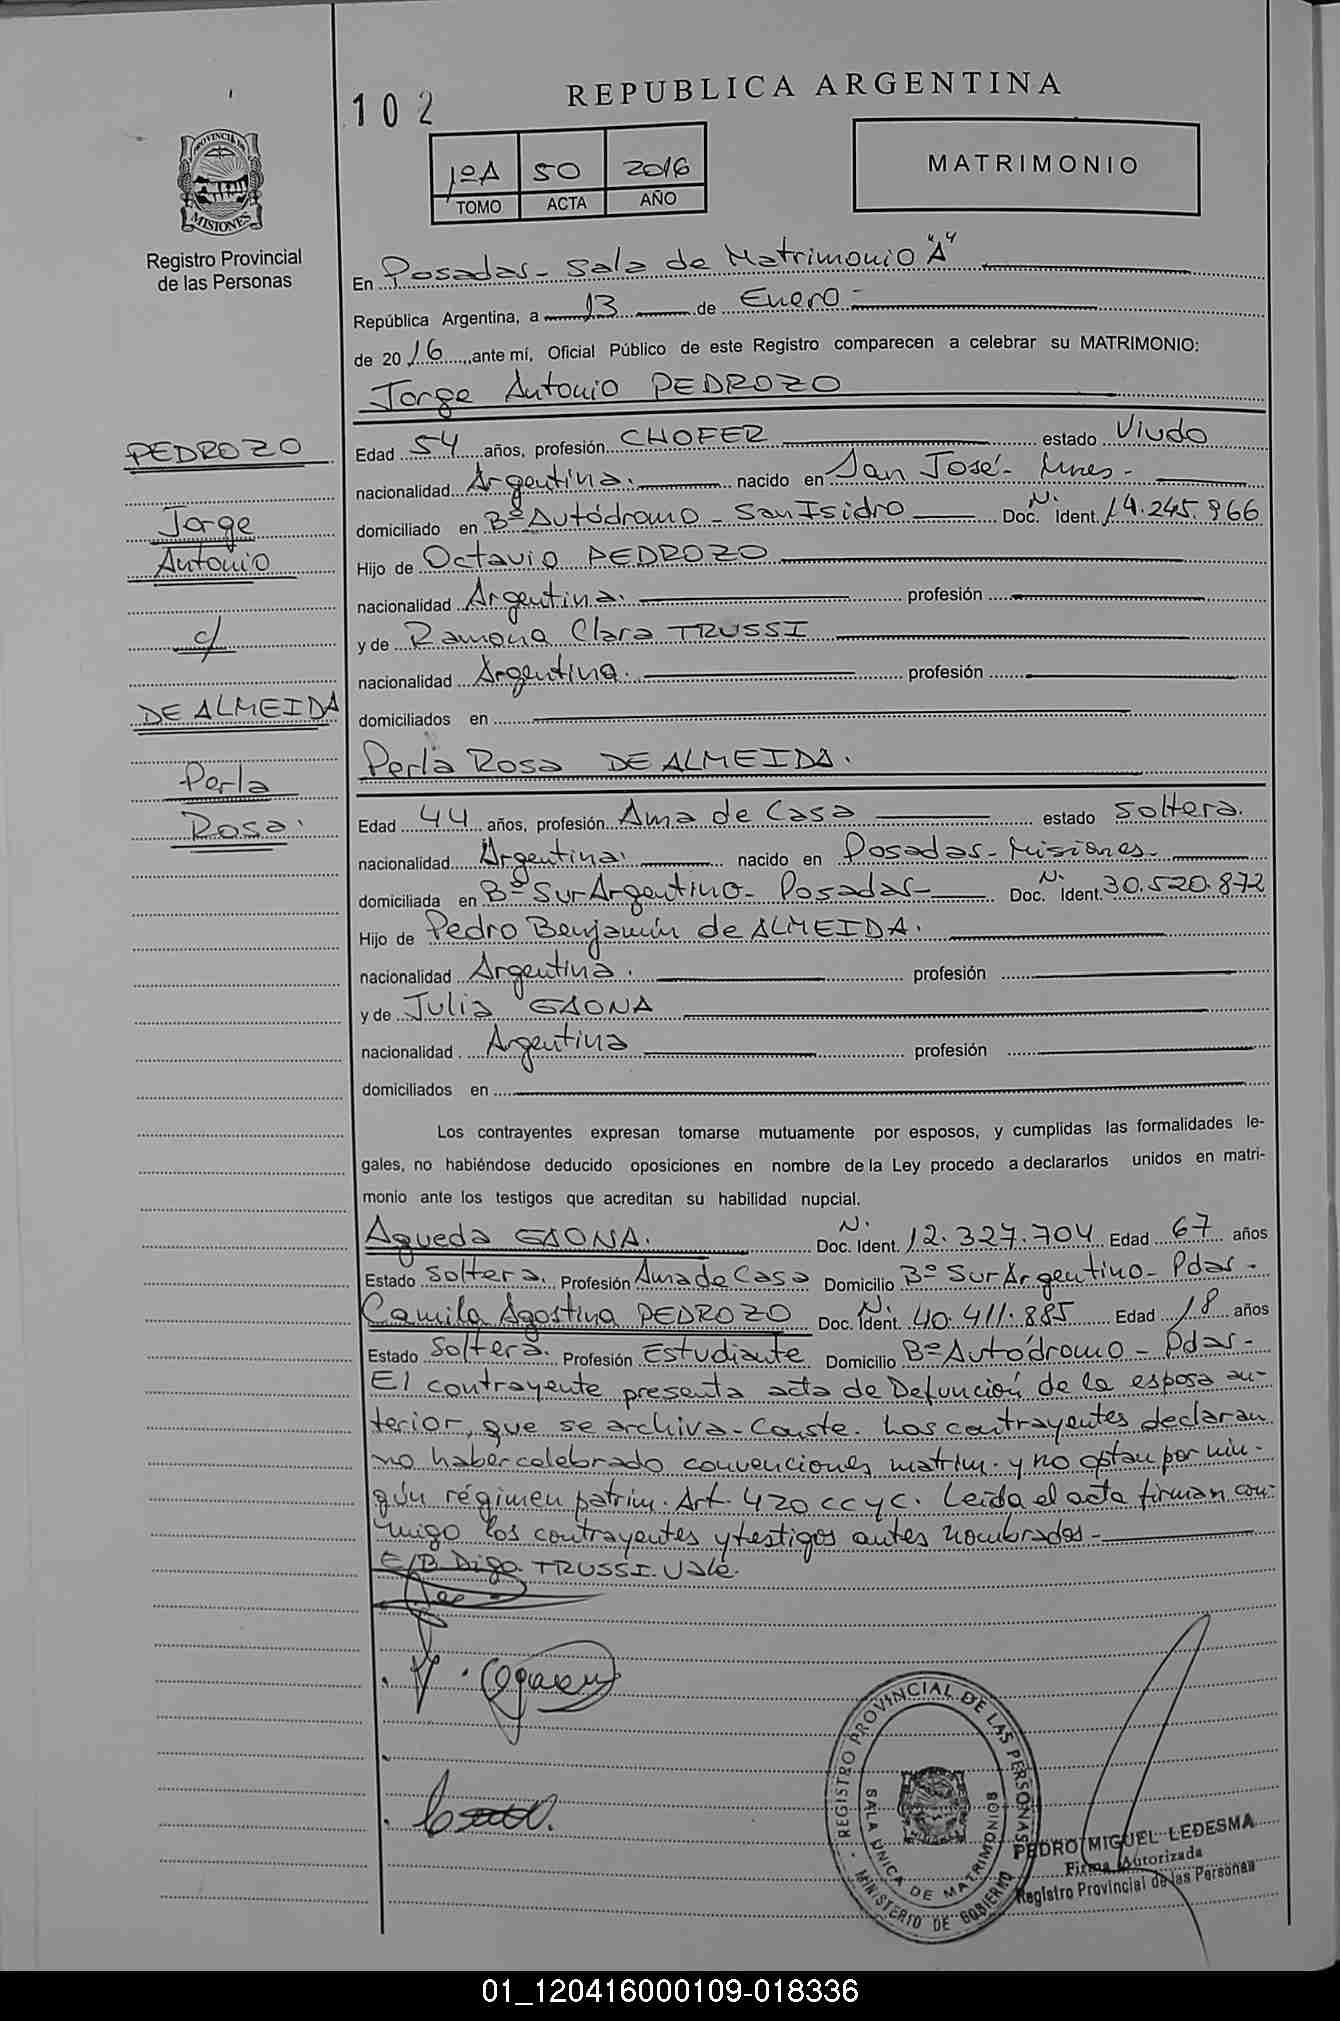 102
REPUBLICA ARGENTINA
PROVINCIA DE
MISIONES
Registro Provincial
de las Personas
1ºA 50 2016
TOMO ACTA AÑO
MATRIMONIO
En Posadas - Sala de Matrimonio "A"
República Argentina, a 13 de Enero -
de 2016, ante mí, Oficial Público de este Registro comparecen a celebrar su MATRIMONIO:
Jorge Antonio PEDROZO
PEDROZO
Jorge
Antonio
c/
DE ALMEIDA
Perla
Rosa.
Edad 54 años, profesión CHOFER estado Viudo
nacionalidad Argentina. nacido en San José - Mnes -
domiciliado en Bº Autódromo - San Isidro Doc. N. ident. 14.245.966
Hijo de Octavio PEDROZO
nacionalidad Argentina. profesión
y de Ramona Clara TRUSSI
nacionalidad Argentina. profesión
domiciliados en
Perla Rosa DE ALMEIDA.
Edad 44 años, profesión Ama de Casa estado Soltera.
nacionalidad Argentina. nacido en Posadas - Misiones -
domiciliada en Bº Sur Argentino - Posadas - Doc. N. Ident. 30.520.872
Hijo de Pedro Benjamín de ALMEIDA.
nacionalidad Argentina. profesión
y de Julia GAONA
nacionalidad Argentina profesión
domiciliados en
Los contrayentes expresan tomarse mutuamente por esposos, y cumplidas las formalidades le-
gales, no habiéndose deducido oposiciones en nombre de la Ley procedo a declararlos unidos en matri-
monio ante los testigos que acreditan su habilidad nupcial.
Agueda GAONA. Doc. N. Ident. 12.327.704 Edad 67 años
Estado Soltera. Profesión Ama de Casa Domicilio Bº Sur Argentino - Pdas -
Camila Agostina PEDROZO Doc. N. Ident. 40.411.885 Edad 18 años
Estado Soltera. Profesión Estudiante Domicilio Bº Autódromo - Pdas -
El contrayente presenta acta de Defunción de la esposa an-
terior, que se archiva - Conste. Los contrayentes declaran
no haber celebrado convenciones matrim. y no optan por nin-
gún régimen patrim. Art. 420 CCyC. Leída el acta firman con-
migo los contrayentes y testigos antes nombrados -
E/B Digo. TRUSSI. Vale.
REGISTRO PROVINCIAL DE LAS PERSONAS
SALA UNICA DE MATRIMONIOS
MINISTERIO DE GOBIERNO
PEDRO MIGUEL LEDESMA
Firma Autorizada
Registro Provincial de las Personas
01_120416000109-018336